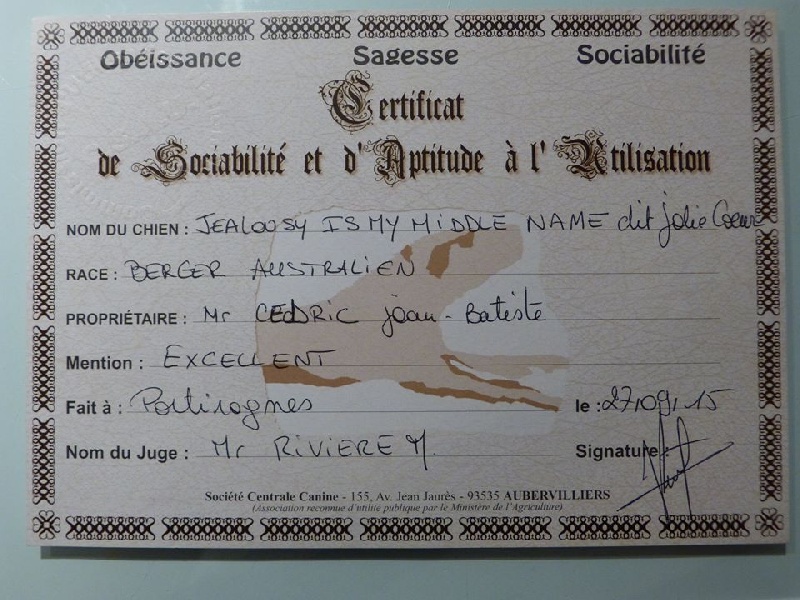 Obéissance Sagesse Sociabilité
Certificat
de Sociabilité et d'Aptitude à l'Utilisation
NOM DU CHIEN : JEALOOSY IS MY MIDDLE NAME dit jolie Coeur
RACE : BERGER AUSTRALIEN
PROPRIÉTAIRE : Mr CEDRIC joan-Batiste
Mention : EXCELLENT
Fait à : Portiragnes le : 27.09.15
Nom du Juge : Mr RIVIERE M. Signature :
Société Centrale Canine - 155, Av. Jean Jaurès - 93535 AUBERVILLIERS
(Association reconnue d'utilité publique par le Ministère de l'Agriculture)